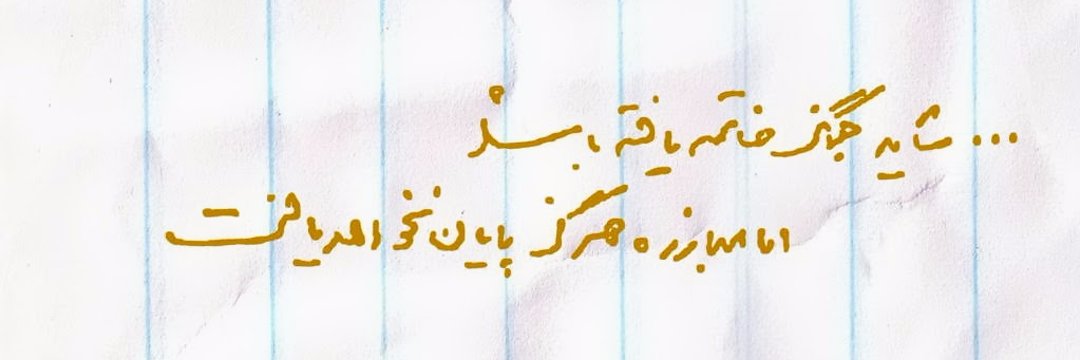 ... شاید جنگ خاتمه یافته باشد
اما مبارزه هرگز پایان نخواهد یافت